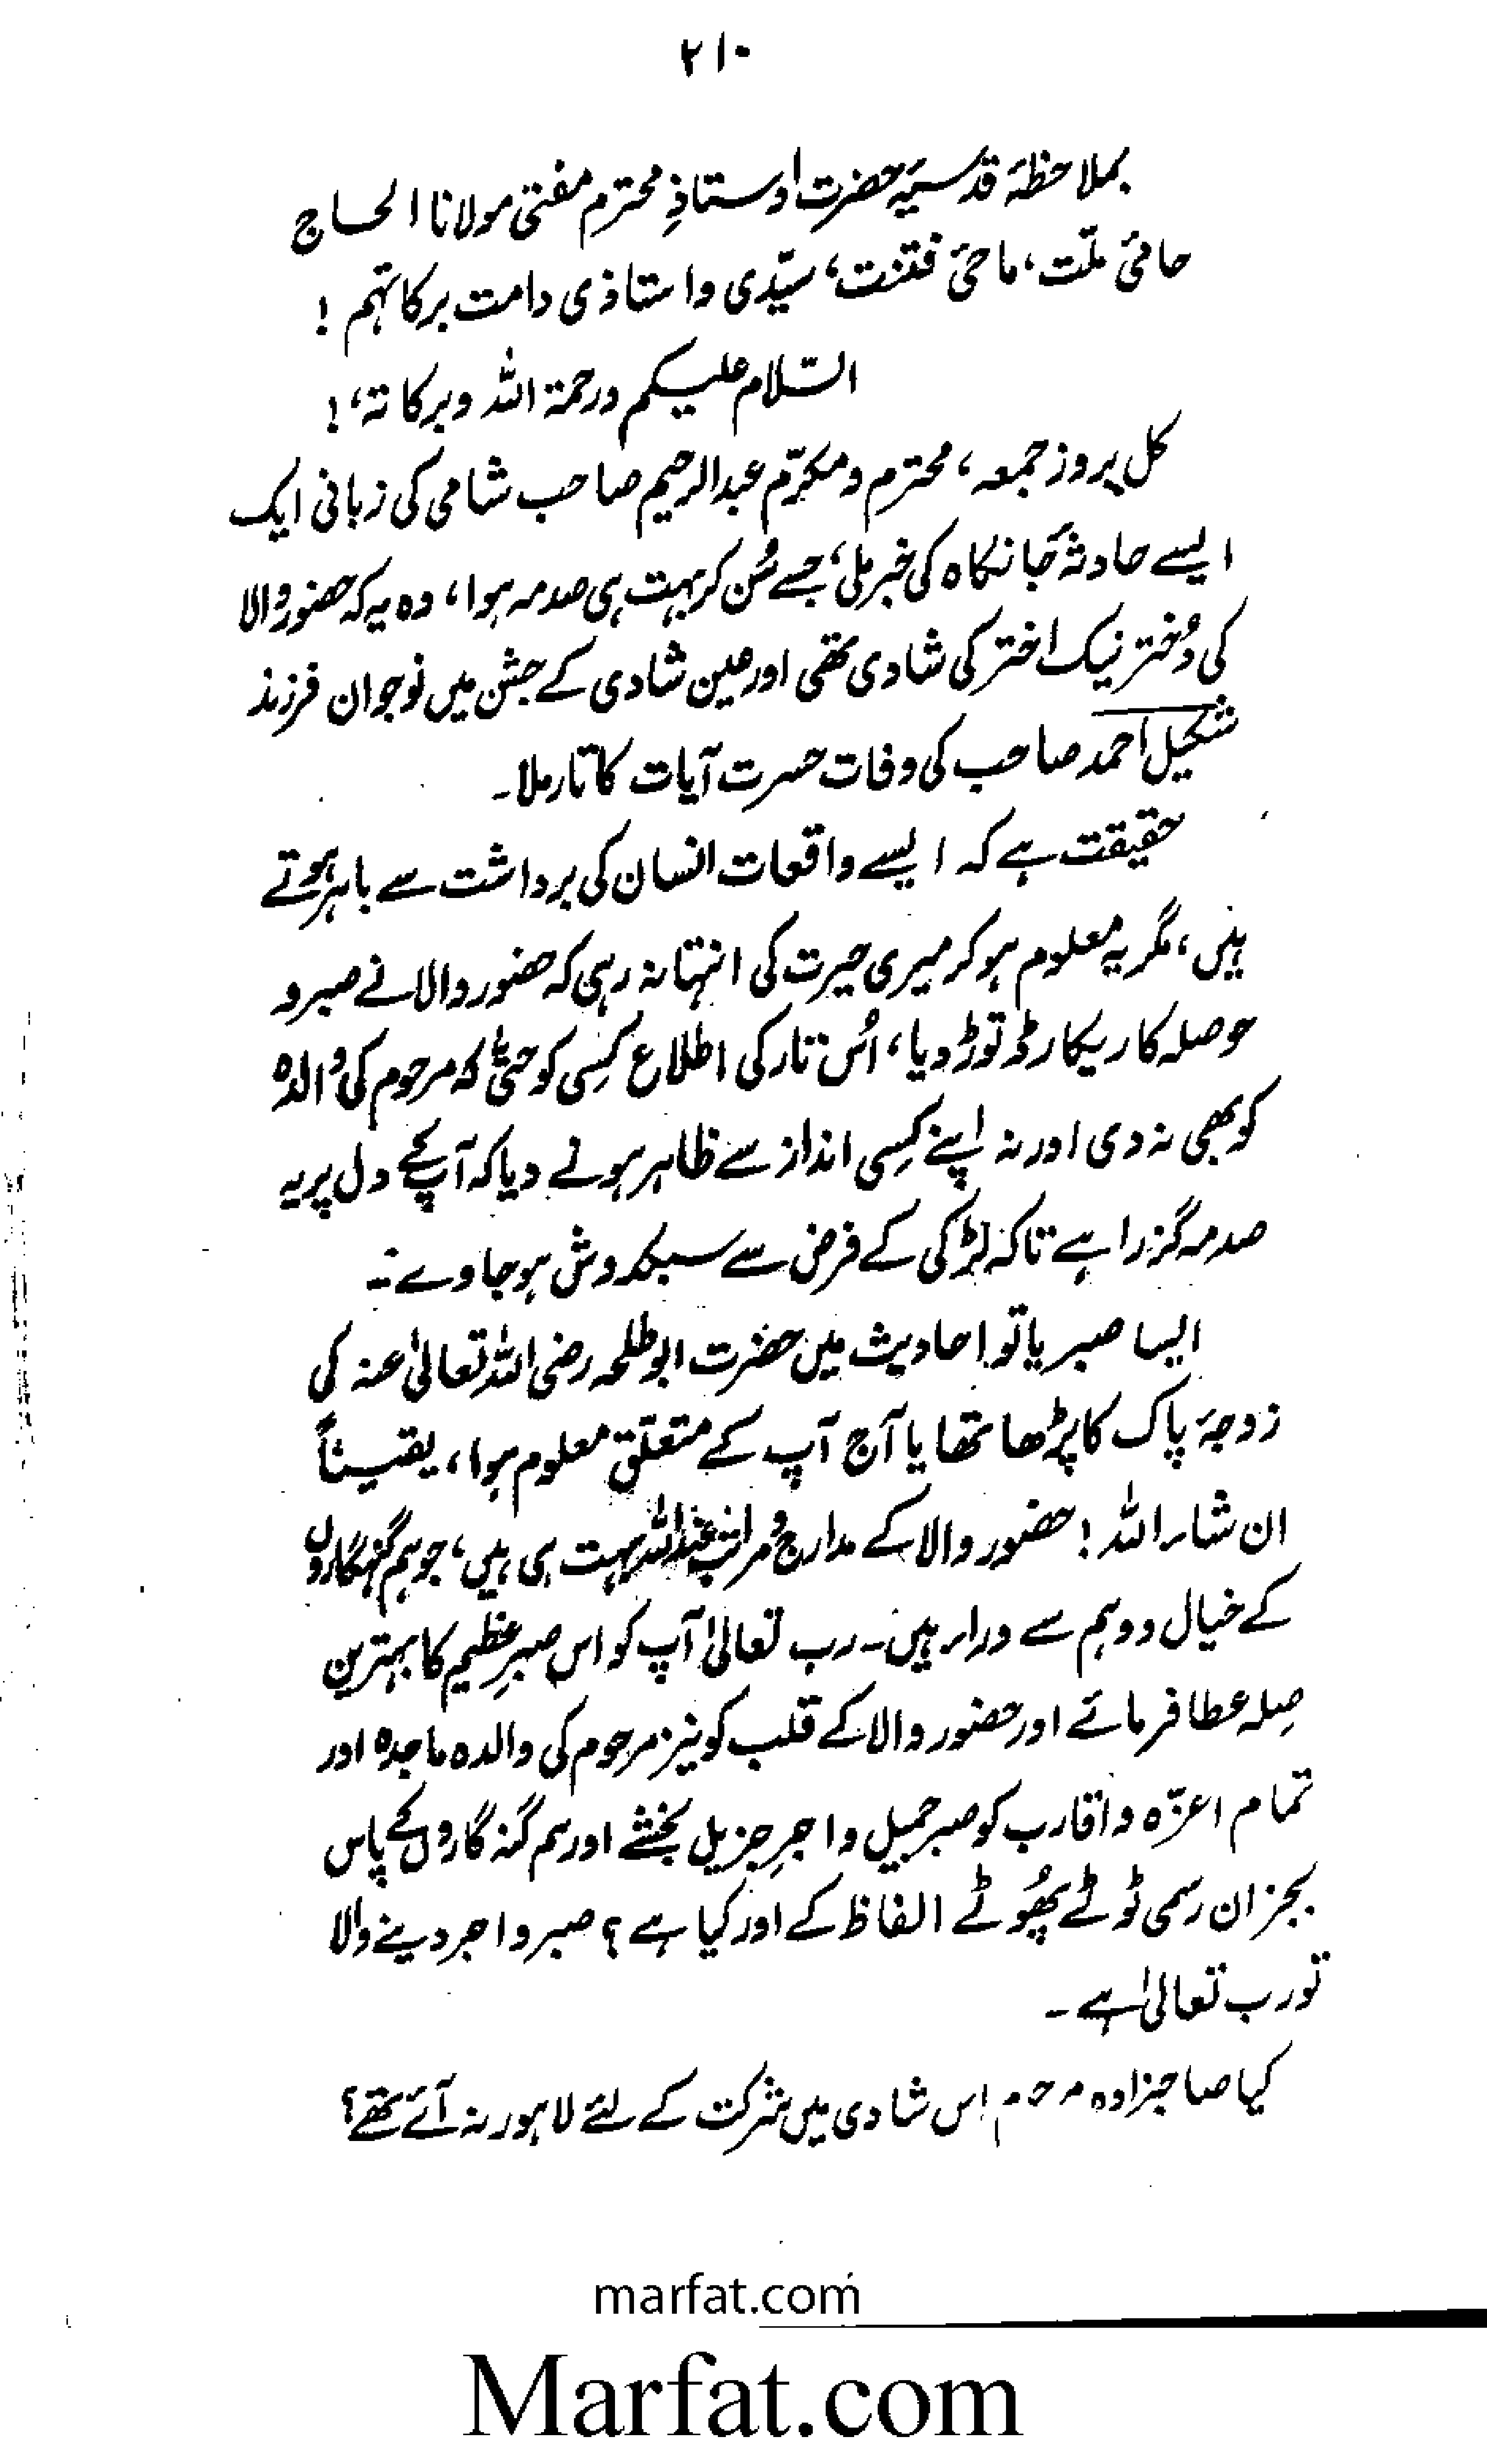 ۲۱۰
بملاحظۂ قدسیۂ حضرت اوستاذِ محترم مفتی مولانا الحاج
حامیٔ ملّت، ماحیٔ فتنت، سیّدی واستاذی دامت برکاتہم !
السّلام علیکم ورحمۃ اللہ وبرکاتہ، !
کل بروز جمعہ، محترم ومکرّم عبدالرحیم صاحب شامی کی زبانی ایک
ایسے حادثۂ جانکاہ کی خبر ملی، جسے سُن کر بہت ہی صدمہ ہوا، وہ یہ کہ حضور والا
کی دُختر نیک اختر کی شادی تھی اور عین شادی کے جشن میں نوجوان فرزند
شکیل احمد صاحب کی وفات حسرت آیات کا تار ملا۔
حقیقت ہے کہ ایسے واقعات انسان کی برداشت سے باہر ہوتے
ہیں، مگر یہ معلوم ہو کر میری حیرت کی انتہا نہ رہی کہ حضور والا نے صبر و
حوصلہ کا ریکارڈ توڑ دیا، اُس تار کی اطلاع کِسی کو حتیٰ کہ مرحوم کی والدہ
کو بھی نہ دی اور نہ اپنے کِسی انداز سے ظاہر ہونے دیا کہ آپ کے دل پر یہ
صدمہ گزرا ہے تاکہ لڑکی کے فرض سے سبکدوش ہو جاوے ۔
ایسا صبر یا تو احادیث میں حضرت ابوطلحہ رضی اللہ تعالیٰ عنہ کی
زوجۂ پاک کا پڑھا تھا یا آج آپ کے متعلّق معلوم ہوا، یقیناً
ان شاء اللہ ! حضور والا کے مدارج و مراتب عند اللہ بہت ہی ہیں، جو ہم گنہگاروں
کے خیال و وہم سے وراء ہیں۔ رب تعالیٰ آپ کو اس صبرِ عظیم کا بہترین
صِلہ عطا فرمائے اور حضور والا کے قلب کو نیز مرحوم کی والدہ ماجدہ اور
تمام اعزّہ واقارب کو صبر جمیل و اجرِ جزیل بخشے اور ہم گنہ گاروں کے پاس
بجز ان رسمی ٹوٹے پھُوٹے الفاظ کے اور کیا ہے ؟ صبر و اجر دینے والا
تو رب تعالیٰ ہے ۔
کیا صاحبزادہ مرحوم اس شادی میں شرکت کے لئے لاہور نہ آئے تھے ؟
marfat.com
Marfat.com